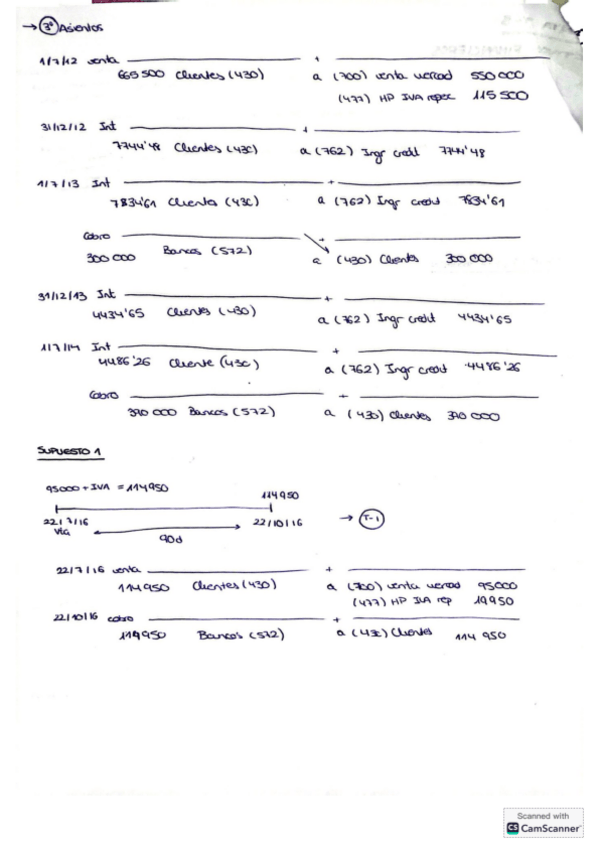 → 3º Asientos
1/7/12 venta
665 500 Clientes (430) a (700) venta mercad 550 000
(477) HP IVA reperc 115 500
31/12/12 Int
7744'48 Clientes (430) a (762) Ingr credit 7744'48
1/7/13 Int
7834'61 Clientes (430) a (762) Ingr credit 7834'61
Cobro
300 000 Bancos (572) a (430) Clientes 300 000
31/12/13 Int
4434'65 Clientes (430) a (762) Ingr credit 4434'65
1/7/14 Int
4486'26 Cliente (430) a (762) Ingr credit 4486'26
Cobro
390 000 Bancos (572) a (430) Clientes 390 000
SUPUESTO 1
95000 + IVA = 114950
114950
22/7/16 22/10/16 → T-1
vta
90d
22/7/16 venta
114950 Clientes (430) a (700) venta mercad 95000
(477) HP IVA rep 19950
22/10/16 cobro
114950 Bancos (572) a (430) Clientes 114 950
Scanned with
CS CamScanner